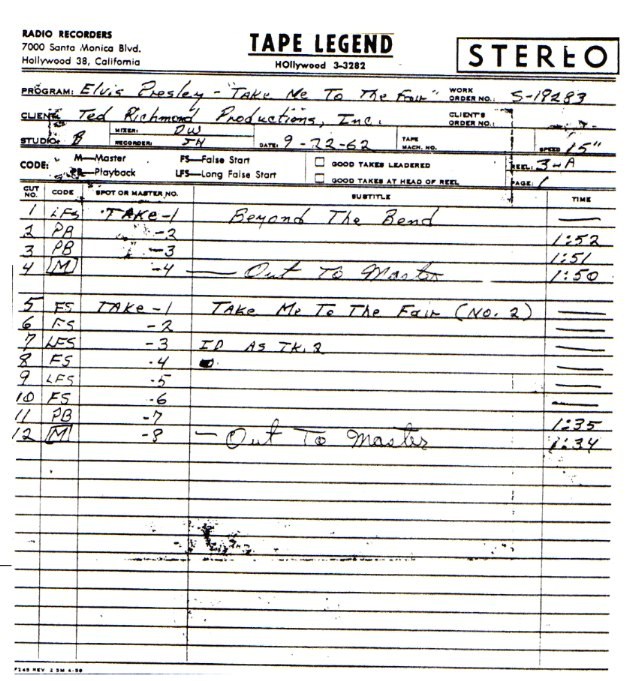 RADIO RECORDERS
7000 Santa Monica Blvd.
Hollywood 38, California
TAPE LEGEND
HOllywood 3-3282
STEREO
PROGRAM: Elvis Presley - "Take Me To The Fair" WORK ORDER NO.: S-19283
CLIENT: Ted Richmond Productions, Inc. CLIENT'S ORDER NO.:
STUDIO: B MIXER: DW RECORDER: JH DATE: 9-22-62 TAPE MACH. NO. SPEED 15"
CODE: M—Master FS—False Start GOOD TAKES LEADERED REEL: 3-A
PB—Playback LFS—Long False Start GOOD TAKES AT HEAD OF REEL PAGE: 1
CUT NO. CODE SPOT OR MASTER NO. SUBTITLE TIME
1 LFS TAKE-1 Beyond The Bend —
2 PB -2 1:52
3 PB -3 1:51
4 M -4 — Out To Master 1:50
5 FS TAKE-1 Take Me To The Fair (No. 2) —
6 FS -2 —
7 LFS -3 ID AS TK. 2 —
8 FS -4 —
9 LFS -5 —
10 FS -6 —
11 PB -7 1:35
12 M -8 — Out To Master 1:34